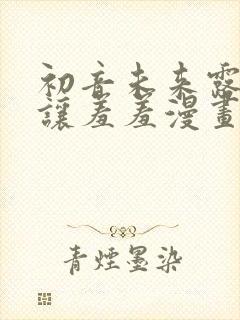 初音未来露
讓羞羞漫畫
青煙墨染